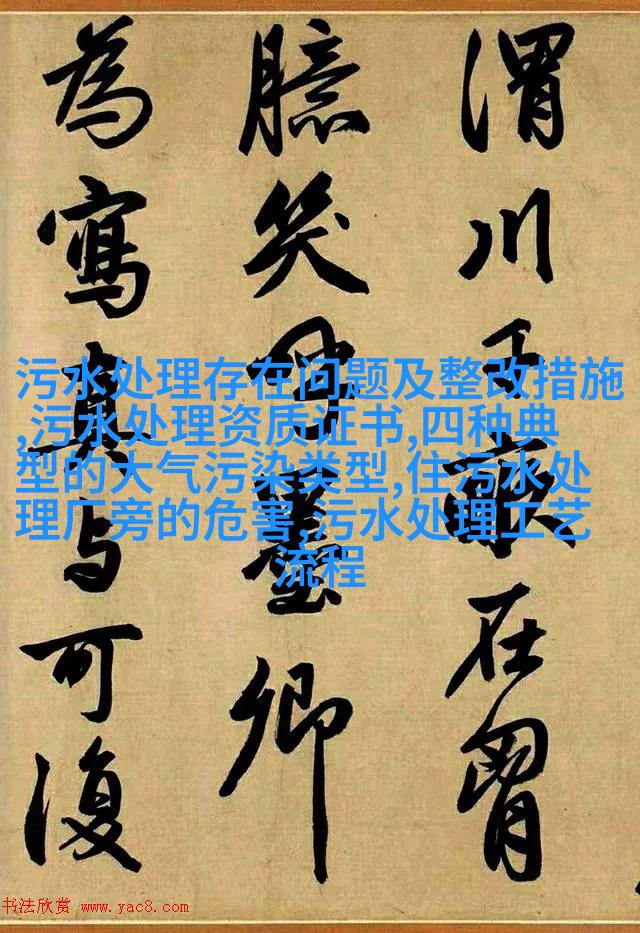 渭川千畝在胷
臆笑呼墨卿
為寫真与可復
污水处理存在问题及整改措施
,污水处理资质证书,四种典
型的大气污染类型,住污水处
理厂旁的危害,污水处理工艺
流程
书法欣赏 www.yac8.com